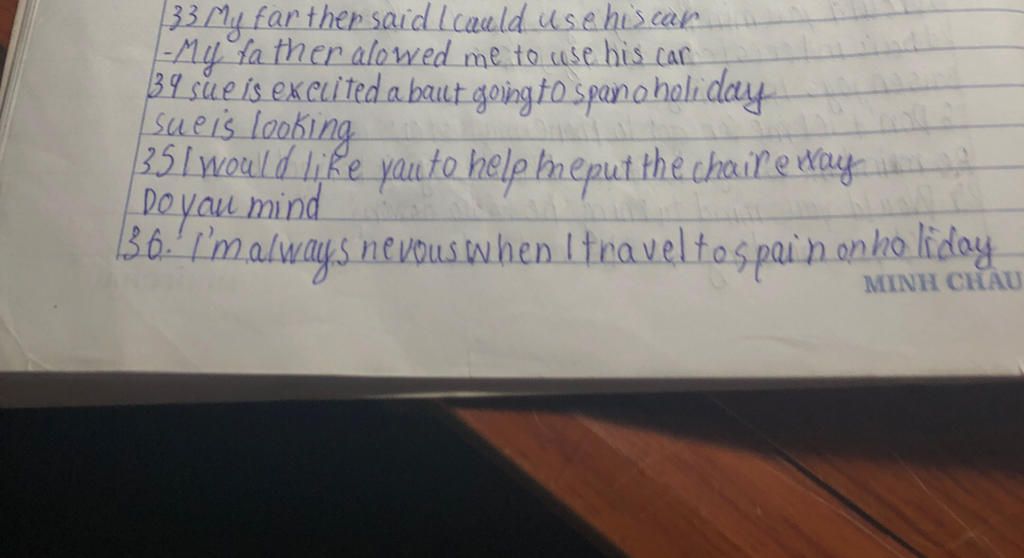 33 My farther said I could use his car
-My father alowed me to use his car
34 sue is excited abaut going to span o holiday
sue is looking
35 I would like you to help me put the chair eway
Do yau mind
36. I'm always nevous when I travel to spain on holiday
MINH CHÂU